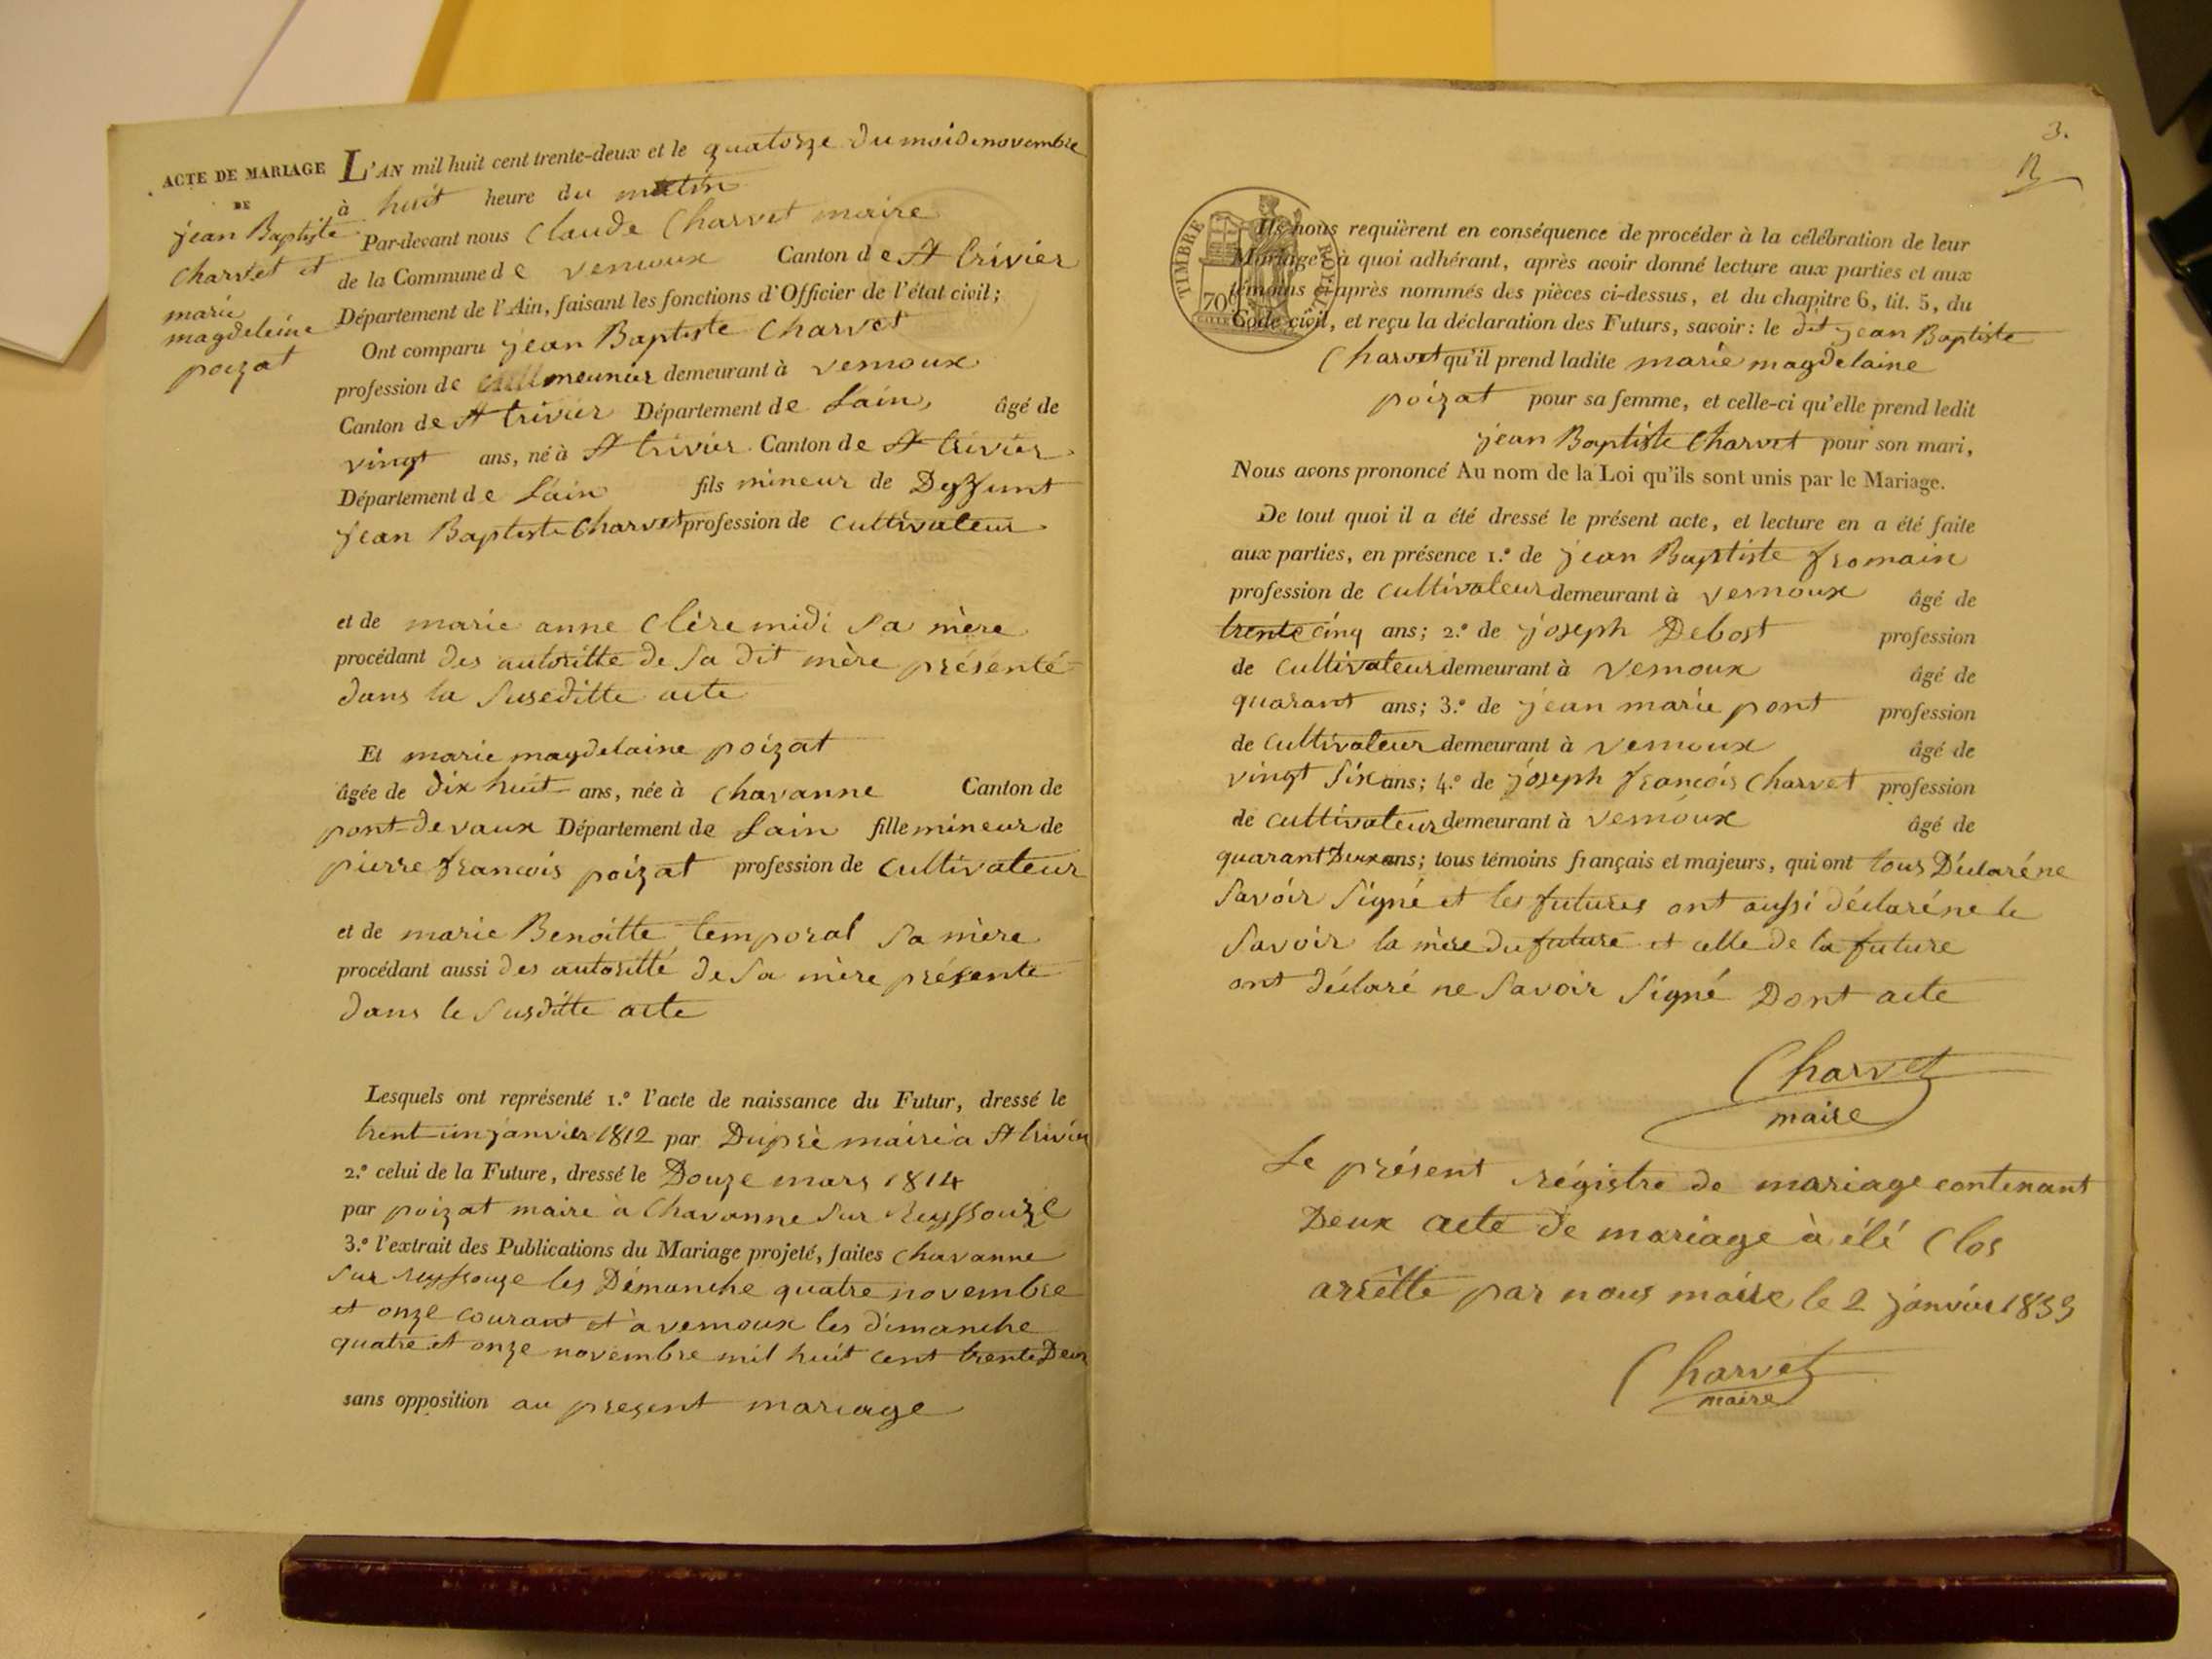 ACTE DE MARIAGE
DE
jean Baptiste
charvet et
marie
magdeleine
poizat
L'AN mil huit cent trente-deux et le quatorze du mois novembre
à huit heure du matin
Par-devant nous Claude Charvet maire
de la Commune de vernoux Canton de St trivier
Département de l'Ain, faisant les fonctions d'Officier de l'état civil;
Ont comparu jean Baptiste Charvet
profession de meunier demeurant à vernoux
Canton de St trivier Département de Lain, âgé de
vingt ans, né à St trivier Canton de St trivier
Département de Lain fils mineur de Deffunt
jean Baptiste Charvet profession de cultivateur
et de marie anne Clère midi sa mère
procédant des autoritte de sa dit mère présenté
dans la suseditte acte
Et marie magdelaine poizat
âgée de dix huit ans, née à chavanne Canton de
pont-de vaux Département de Lain fille mineur de
pierre françois poizat profession de cultivateur
et de marie Benoitte temporal sa mère
procédant aussi des autoritté de sa mère présente
dans le susditte acte
Lesquels ont représenté 1.º l'acte de naissance du Futur, dressé le
trent-un janvier 1812 par Dupré maire à St trivier
2.º celui de la Future, dressé le Douze mars 1814
par poizat maire à Chavanne sur Reyssouze
3.º l'extrait des Publications du Mariage projeté, faites chavanne
sur reyssouze les Démanche quatre novembre
et onze courant et à vernoux les dimanche
quatre et onze novembre mil huit cent trente Deux
sans opposition au present mariage
3.
TIMBRE ROYAL
70
Ils nous requièrent en conséquence de procéder à la célébration de leur
Mariage; à quoi adhérant, après avoir donné lecture aux parties et aux
témoins ci-après nommés des pièces ci-dessus, et du chapitre 6, tit. 5, du
Code civil, et reçu la déclaration des Futurs, savoir: le dit jean Baptiste
Charvet qu'il prend ladite marie magdelaine
poizat pour sa femme, et celle-ci qu'elle prend ledit
jean Baptiste Charvet pour son mari,
Nous avons prononcé Au nom de la Loi qu'ils sont unis par le Mariage.
De tout quoi il a été dressé le présent acte, et lecture en a été faite
aux parties, en présence 1.º de jean Baptiste fromain
profession de cultivateur demeurant à vernoux âgé de
trente cinq ans; 2.º de joseph Debost profession
de cultivateur demeurant à vernoux âgé de
quarant ans; 3.º de jean marie pont profession
de cultivateur demeurant à vernoux âgé de
vingt six ans; 4.º de joseph françois Charvet profession
de cultivateur demeurant à vernoux âgé de
quarant Deux ans; tous témoins français et majeurs, qui ont tous Déclaré ne
savoir signé et les futures ont aussi déclaré ne le
savoir la mère du future et celle de la future
ont déclaré ne savoir signé Dont acte
Charvet
maire
Le présent régistre de mariage contenant
Deux acte de mariage à été Clos
arrêtte par nous maire le 2 janvier 1833
Charvet
maire